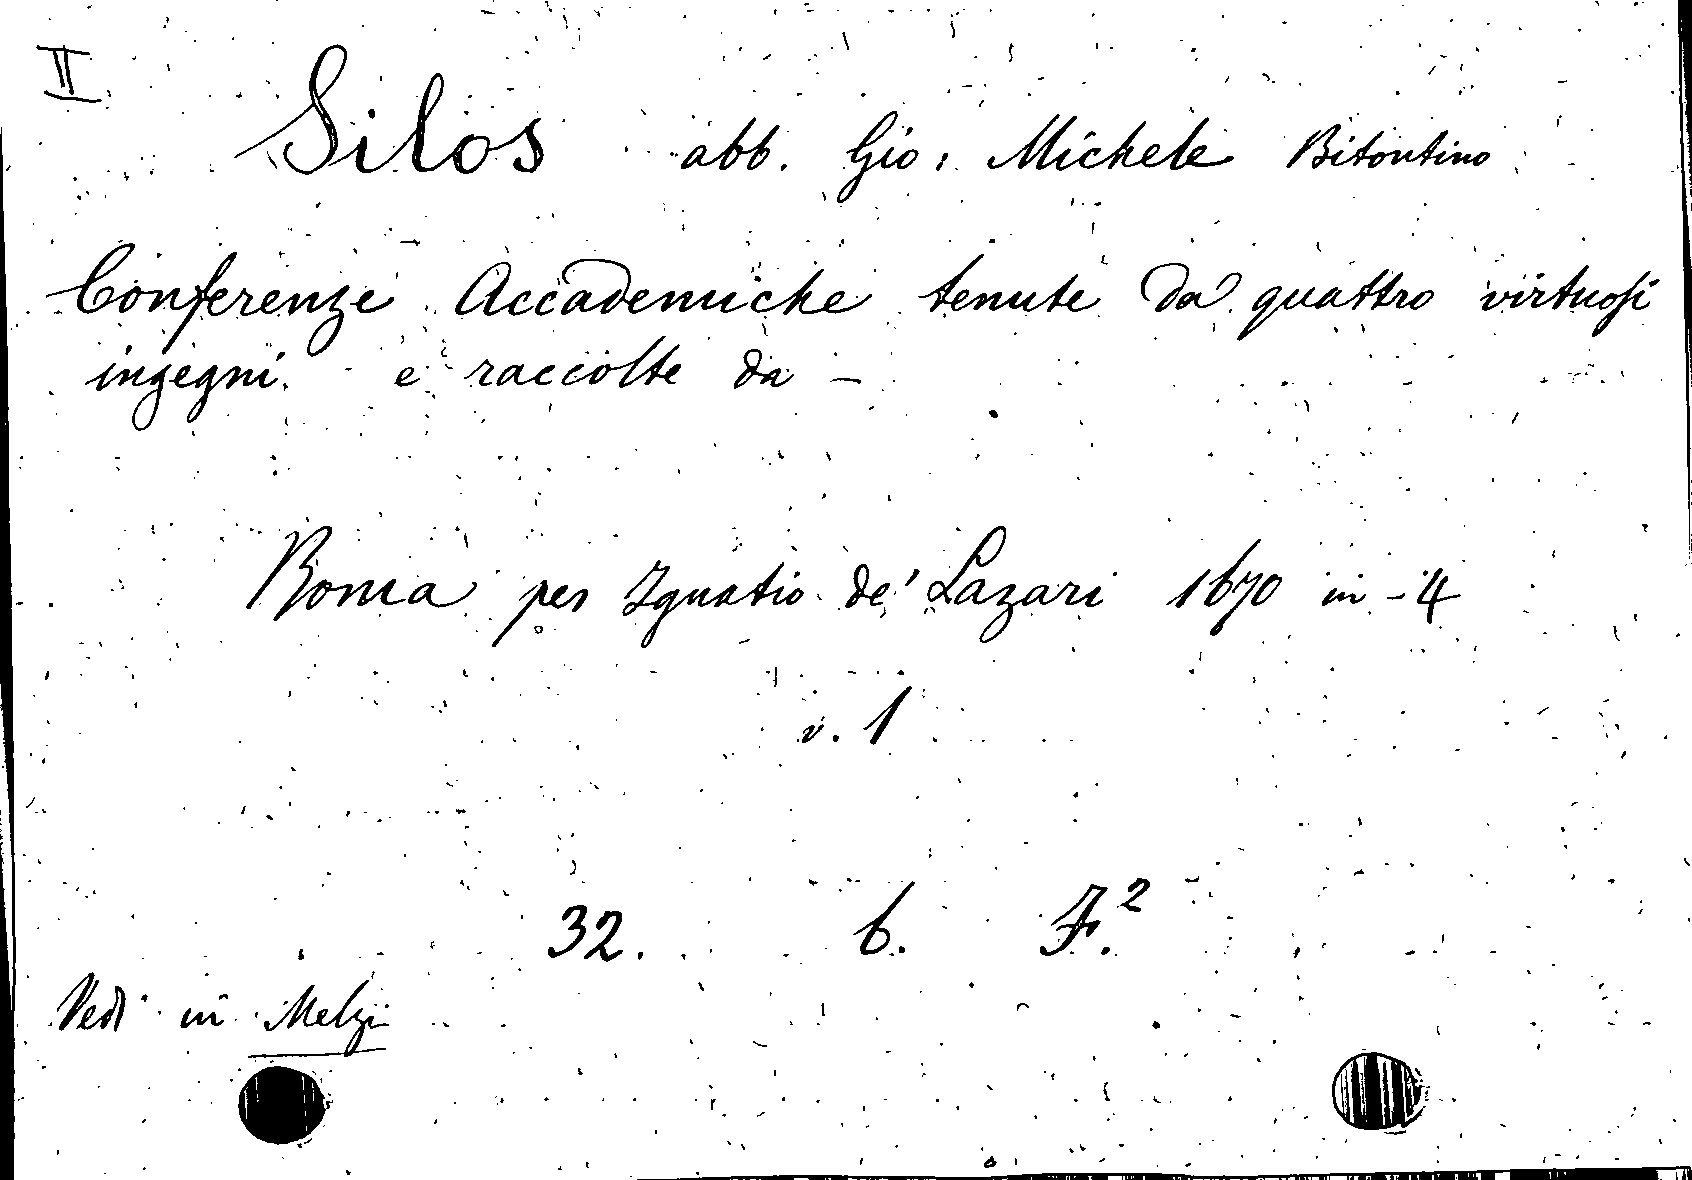 II
Silos abb. Gio: Michele Bitontino
Conferenze Accademiche tenute da quattro virtuosi
ingegni. e raccolte da –
Roma per Ignatio de' Lazari 1670 in-4
v. 1
32. 6. F.²
Vedi in Melzi